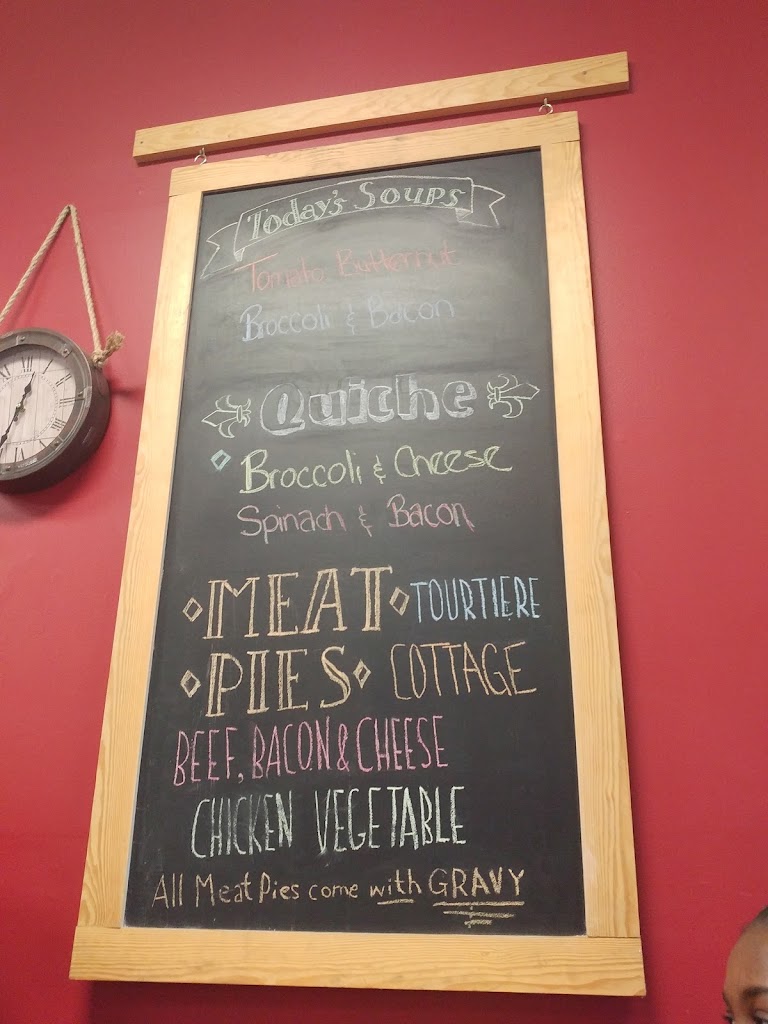 Today's Soups
Tomato Butternut
Broccoli & Bacon
Quiche
Broccoli & Cheese
Spinach & Bacon
MEAT TOURTIERE
PIES COTTAGE
BEEF, BACON & CHEESE
CHICKEN VEGETABLE
All Meat Pies come with GRAVY